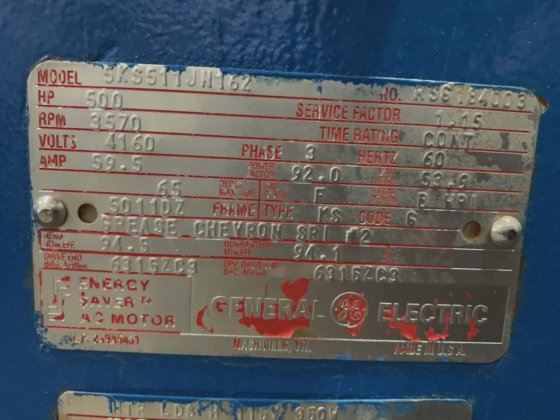 MODEL 5KS511JN162 NO. RSG194003
HP 500 SERVICE FACTOR 1.15
RPM 3570 TIME RATING CONT
VOLTS 4160 PHASE 3 HERTZ 60
AMP 59.5 POWER FACTOR 92.0 53.9
65 DEG C MAX. AMB. CLASS F
5011DZ FRAME TYPE KS CODE G
GREASE CHEVRON SRI #2
NEMA NOM. EFF. 94.5 GUARANTEED MIN. EFF. 94.1
DRIVE END BRG. AFBMA 6315ZC3 OPP. DRIVE END BRG. AFBMA 6315ZC3
ENERGY
SAVER TM
AC MOTOR
GENERAL GE ELECTRIC
N.P. NASHVILLE, TN. MADE IN U.S.A.
HTR LDS H 115V 950W